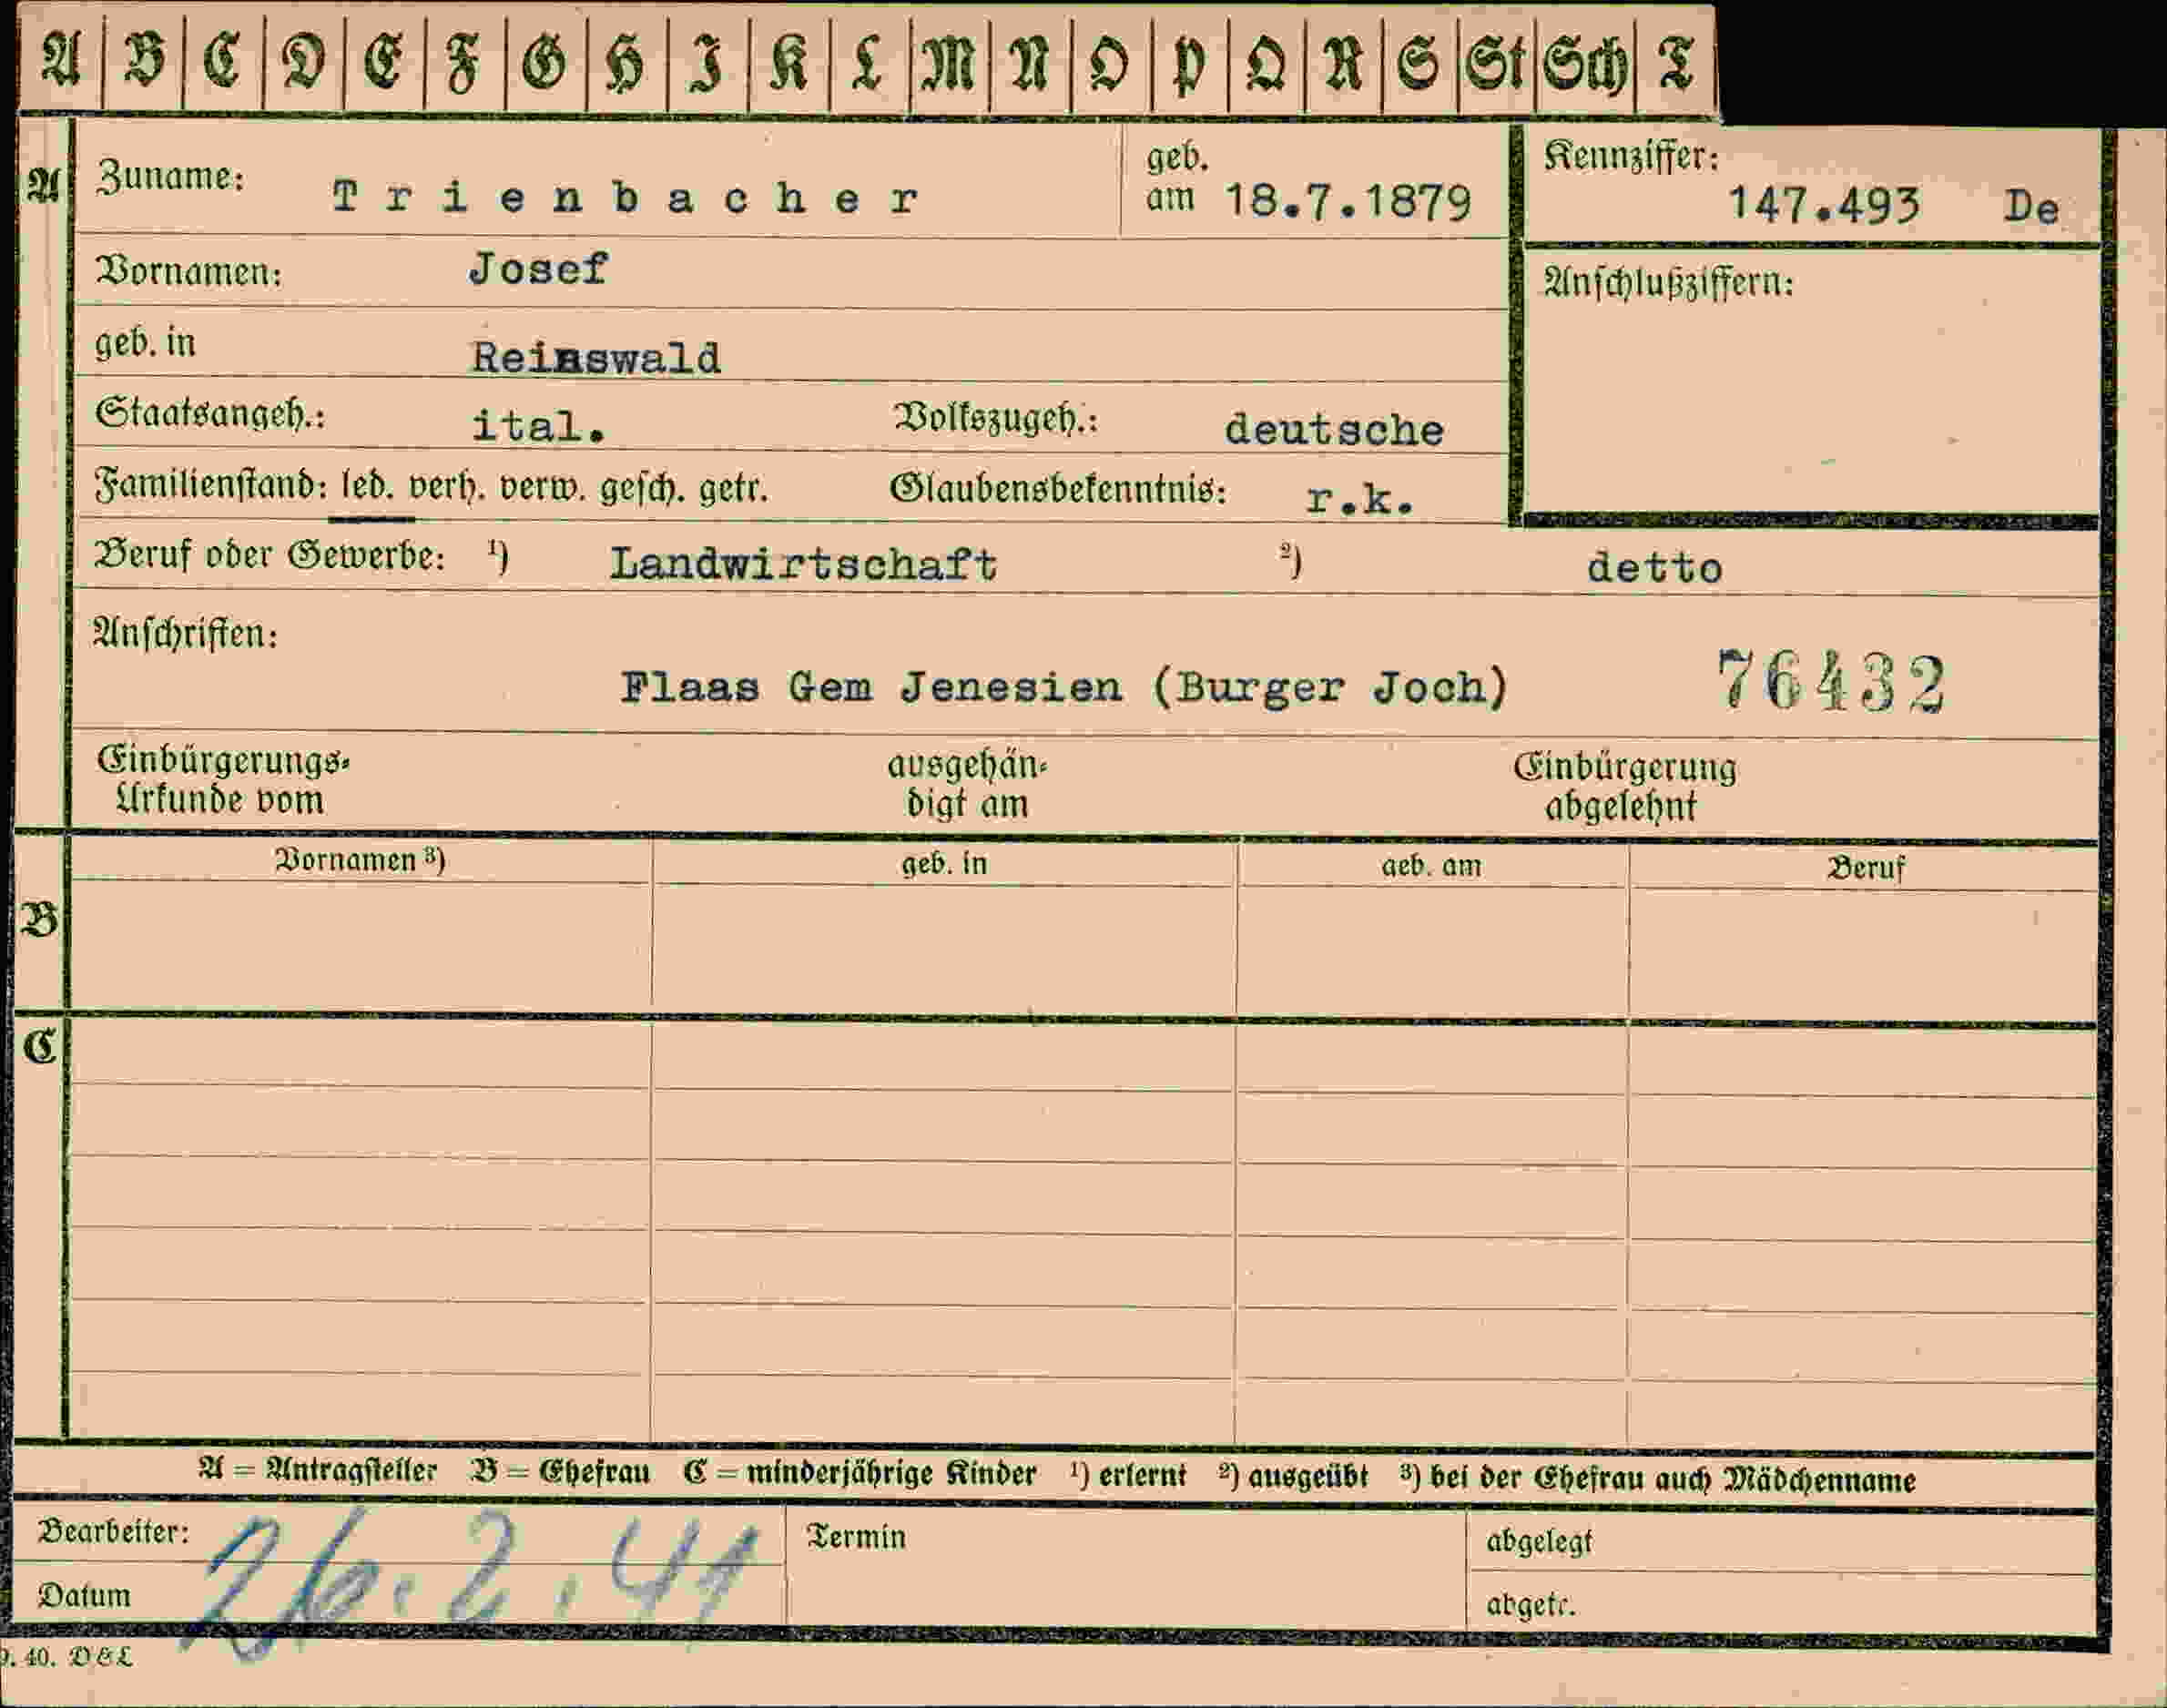 A B C D E F G H I K L M N O P Q R S St Sch T
A
Zuname: Trienbacher
geb. am 18.7.1879
Kennziffer: 147.493 De
Vornamen: Josef
Anschlußziffern:
geb. in Reinswald
Staatsangeh.: ital. Volkszugeh.: deutsche
Familienstand: led. verh. verw. gesch. getr. Glaubensbekenntnis: r.k.
Beruf oder Gewerbe: ¹) Landwirtschaft ²) detto
Anschriften:
Flaas Gem Jenesien (Burger Joch) 76432
Einbürgerungs-Urkunde vom
ausgehän-digt am
Einbürgerung abgelehnt
Vornamen ³) geb. in geb. am Beruf
B
C
A = Antragsteller B = Ehefrau C = minderjährige Kinder ¹) erlernt ²) ausgeübt ³) bei der Ehefrau auch Mädchenname
Bearbeiter: Termin abgelegt
Datum 26.2.41 abgetr.
9. 40. D&L